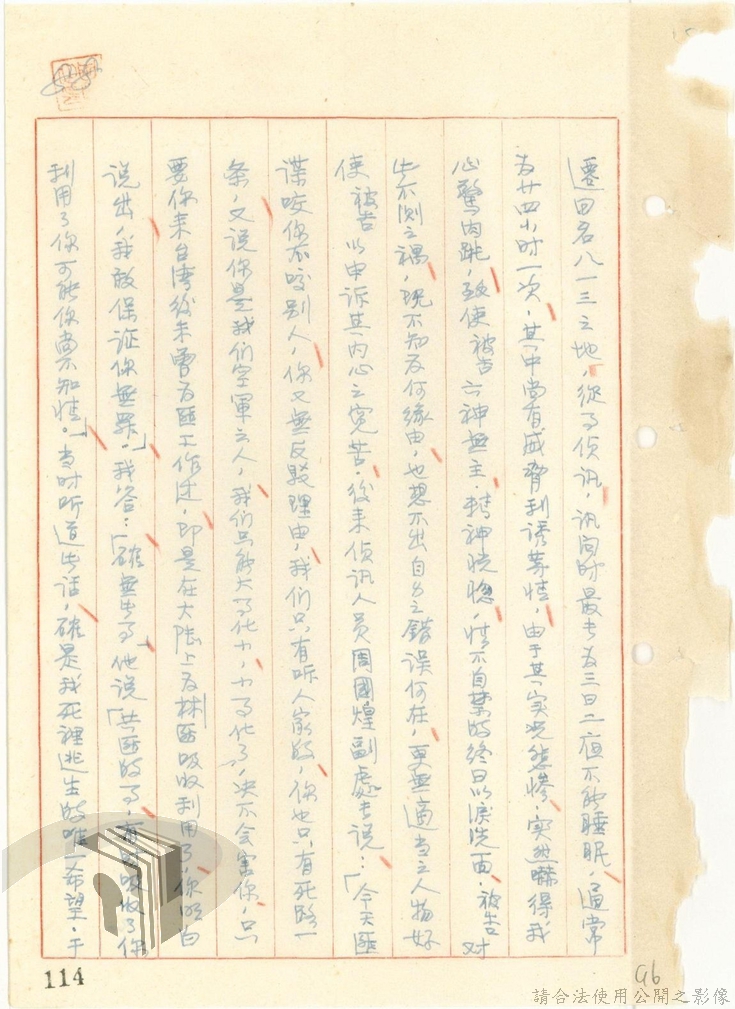 遷回名八一三之地，從了偵訊，訊问时最長为三日二夜不能睡眠，通常
为廿四小时一次，其中尚有威脅利诱等情，由于其实况悲惨，实进嚇得我
心驚肉跳，致使被告六神無主，精神恍惚，情不自禁的终日以淚洗面，被告对
此不测之禍，既不知为何缘由，也想不出自己之错误何在，更無適当之人物好
使被告以申诉其内心之冤苦，後来侦讯人员周國煌副處長说：「今天匪
諜咬你不咬别人，你又無反駁理由，我们只有听人家的，你也只有死路一
条，又说你是我们空軍之人，我们只能大了化小，小了化了，决不会害你，只
要你来台湾後未曾为匪工作过，即是在大陆上为林匪吸收利用了，你明白
说出，我敢保证你無罪。」我答：「確無此了」他说「共匪的了，有时吸收了你
利用了你可能你尚不知情。」当时听道此话，確是我死裡逃生的唯一希望，于
114
96
請合法使用公開之影像